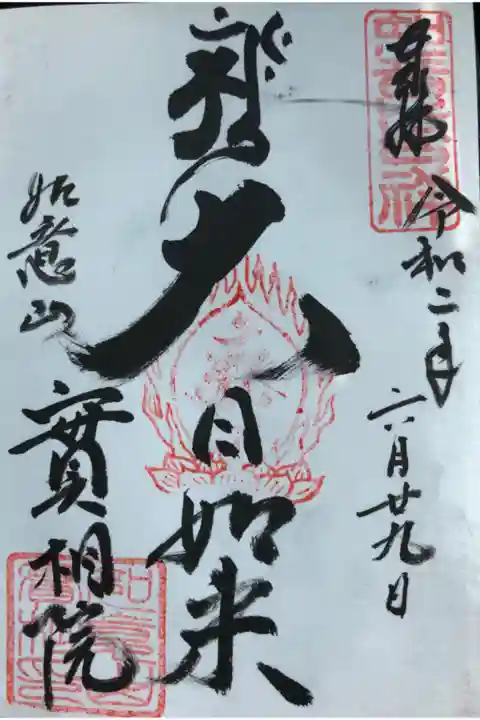 奉拝
令和二年
六月廿九日
大日如来
如意山
實相院